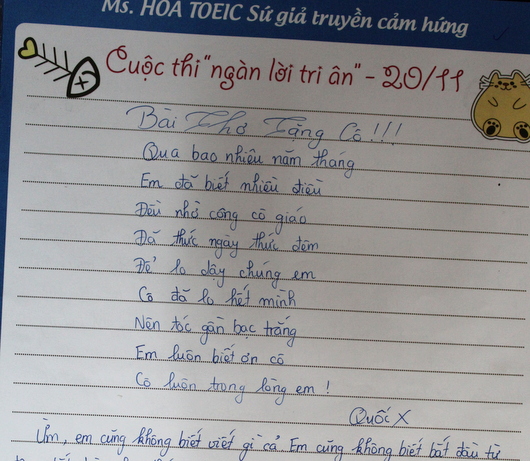 Ms. HOA TOEIC Sứ giả truyền cảm hứng
Cuộc thi "ngàn lời tri ân" - 20/11
Bài Thơ Tặng Cô!!!
Qua bao nhiêu năm tháng
Em đã biết nhiều điều
Đều nhờ công cô giáo
Đã thức ngày thức đêm
Để lo dậy chúng em
Cô đã lo hết mình
Nên tóc gần bạc trắng
Em luôn biết ơn cô
Cô luôn trong lòng em !
Quốc X
Ừm, em cũng không biết viết gì cả. Em cũng không biết bắt đầu từ